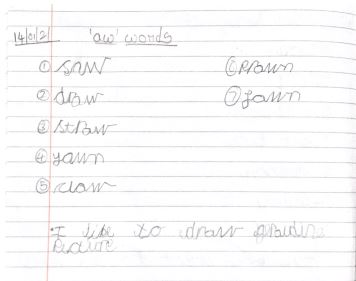 14/01/21 'aw' words
① saw ⑥ prawn
② draw ⑦ fawn
③ straw
④ yawn
⑤ claw
I like to draw
picture